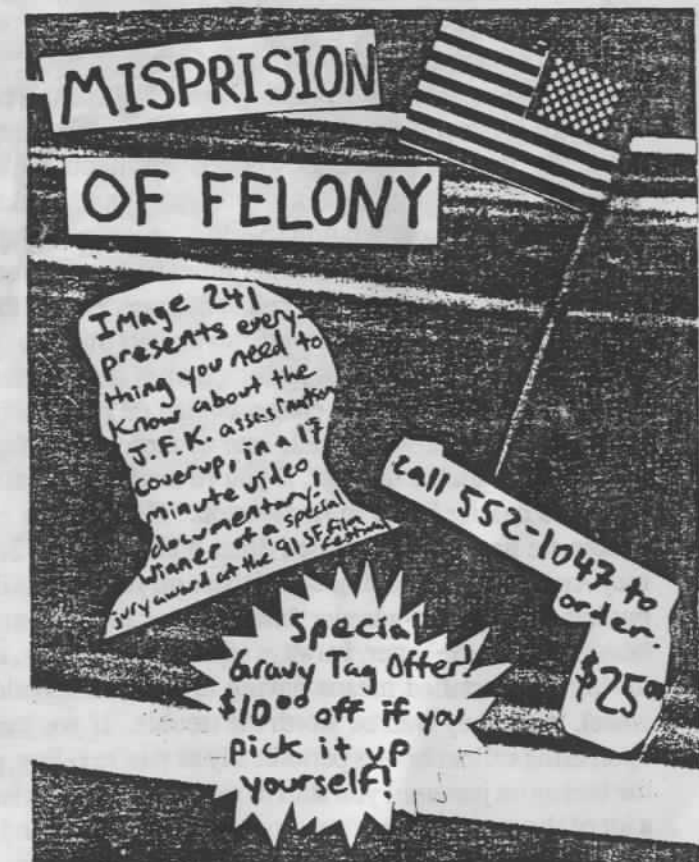 MISPRISION
OF FELONY
Image 241
presents every-
thing you need to
know about the
J.F.K. assasination
coverup, in a 17
minute video
documentary,
winner of a special
jury award at the '91 SF film
festival
call 552-1047 to
order.
$25⁰⁰
Special
Gravy Tag Offer!
$10⁰⁰ off if you
pick it up
yourself!